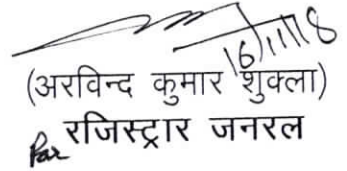 16/11/18
(अरविन्द कुमार शुक्ला)
रजिस्ट्रार जनरल